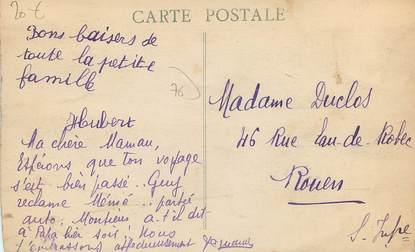 20€
CARTE POSTALE
Bons baisers de
toute la petite
famille
76
Hubert
Ma chère Maman,
Espérons que ton voyage
s'est bien passé.. Guy
réclame Mémé.. partie
auto. Monsieur a-t-il dit
à Papa hier soir; Nous
t'embrassons affectueusement
Madame Duclos
46 Rue Eau-de-Robec
Rouen
S. Infre